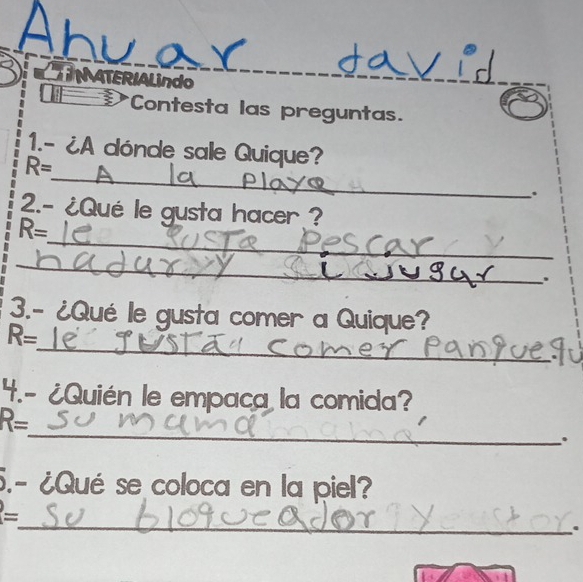 Anuar david
MATERIALindo
Contesta las preguntas.
1.- ¿A dónde sale Quique?
R= A la playa.
2.- ¿Qué le gusta hacer ?
R= le gusta pescar y
nadar y jugar.
3.- ¿Qué le gusta comer a Quique?
R= le gusta comer panque
4.- ¿Quién le empaca la comida?
R= su mamá.
5.- ¿Qué se coloca en la piel?
R= su bloqueador.